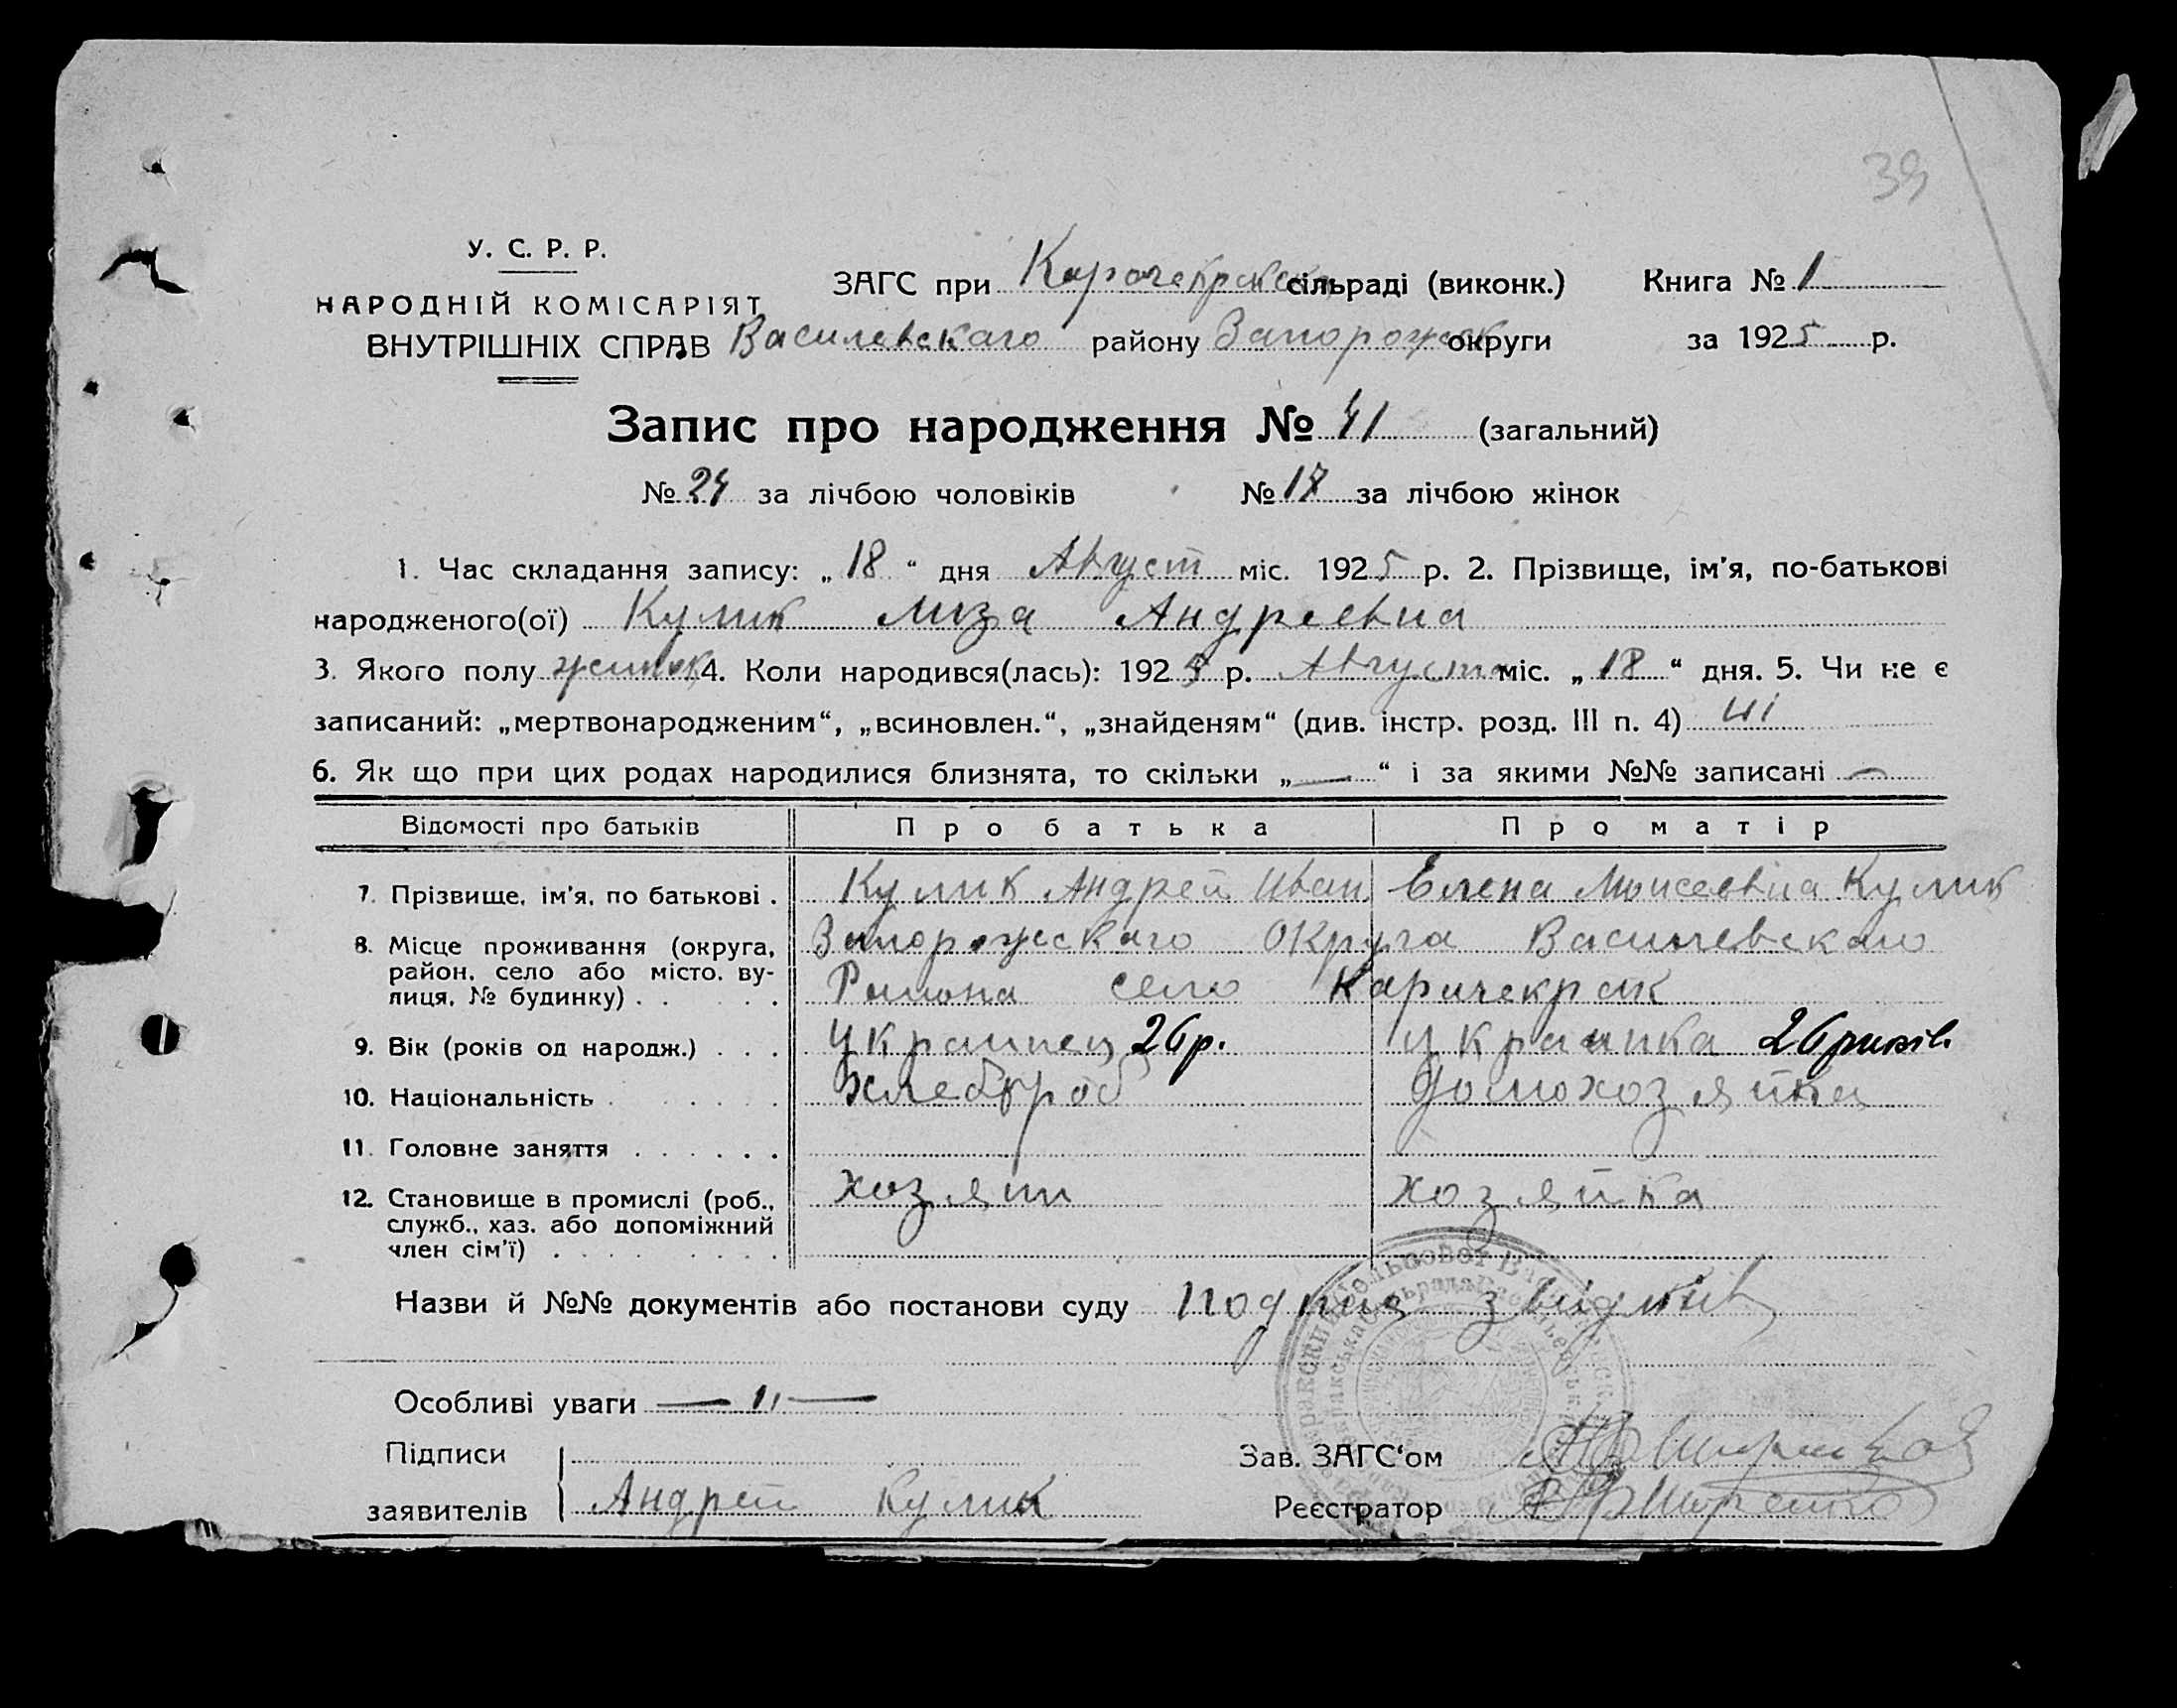 39
У. С. Р. Р.
НАРОДНІЙ КОМІСАРІЯТ
ВНУТРІШНІХ СПРАВ
ЗАГС при Карачекракск сільраді (виконк.) Книга № 1
Василевскаго району Запорожск округи за 1925 р.
Запис про народження № 41 (загальний)
№ 24 за лічбою чоловіків № 17 за лічбою жінок
1. Час складання запису: „18“ дня Август міс. 1925 р. 2. Прізвище, ім'я, по-батькові
народженого(ої) Кулик Лиза Андреевна
3. Якого полу 4. Коли народився(лась): 1925 р. Августа міс. „18“ дня. 5. Чи не є
записаний: „мертвонародженим“, „всиновлен.“, „знайденям“ (див. інстр. розд. III п. 4) ні
6. Як що при цих родах народилися близнята, то скільки „—“ і за якими №№ записані —
Відомості про батьків Про батька Про матір
7. Прізвище, ім'я, по батькові . Кулик Андрей Иван. Елена Моисеевна Кулик
8. Місце проживання (округа, район, село або місто, вулиця, № будинку) . . . . Запорожскаго Округа Василевскаго
Раиона село Карачекрак
9. Вік (років од народж.) . . . Украинец 26 р. Украинка 26 років
10. Національність . . . . . Хлебороб Домохозяйка
11. Головне заняття . . . . . .
12. Становище в промислі (роб., служб., хаз. або допоміжний член сім'ї) . . . . . . . . Хозяин Хозяйка
Назви й №№ документів або постанови суду
Особливі уваги — 11 —
Підписи
заявителів Андрей Кулик
Зав. ЗАГС'ом
Реєстратор